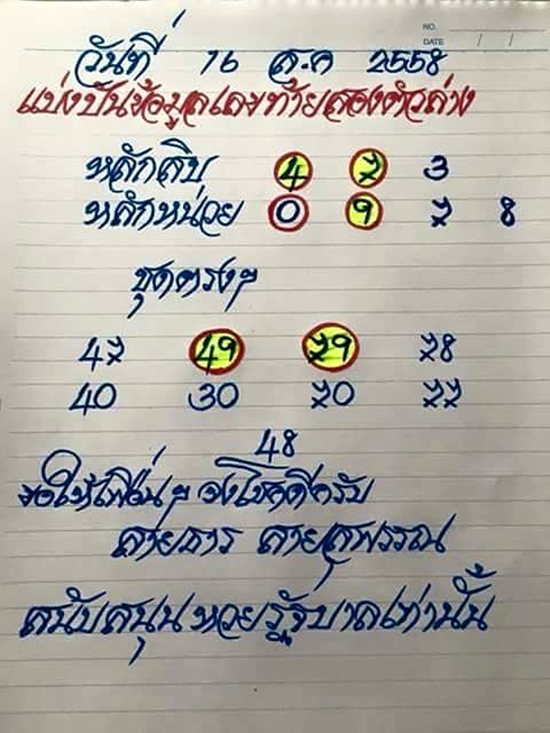 NO.
DATE / /
วันที่ 16 ส.ค 2558
แบ่งปันข้อมูลเลขท้ายสองตัวล่าง
หลักสิบ 4 7 3
หลักหน่วย 0 9 7 8
ชุดตรงๆ
47 49 79 78
40 30 70 77
48
ขอให้เพื่อนๆ จงโชคดีครับ
สายธาร สายสุพรรณ
สนับสนุนหวยรัฐบาลเท่านั้น